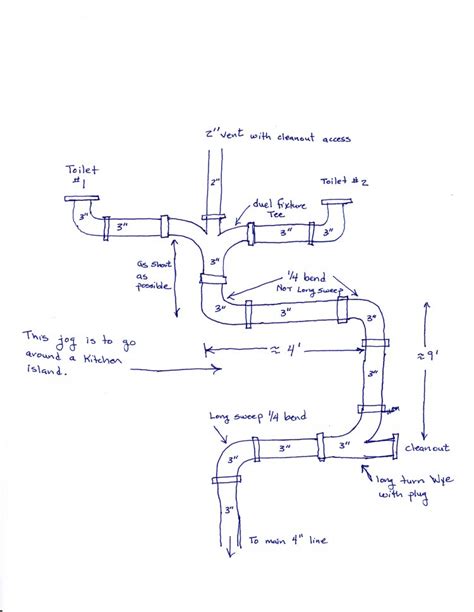 2" vent with cleanout access
Toilet
#1
2"
Toilet #2
duel fixture
Tee
3"
3"
3"
3"
3"
3"
as short
as
possible
1/4 bend
Not Long sweep
3"
3"
3"
This jog is to go
around a Kitchen
island.
≈ 4'
≈ 9'
3"
Long sweep 1/4 bend
3"
3"
3"
cleanout
long turn Wye
with plug
3"
To main 4" line